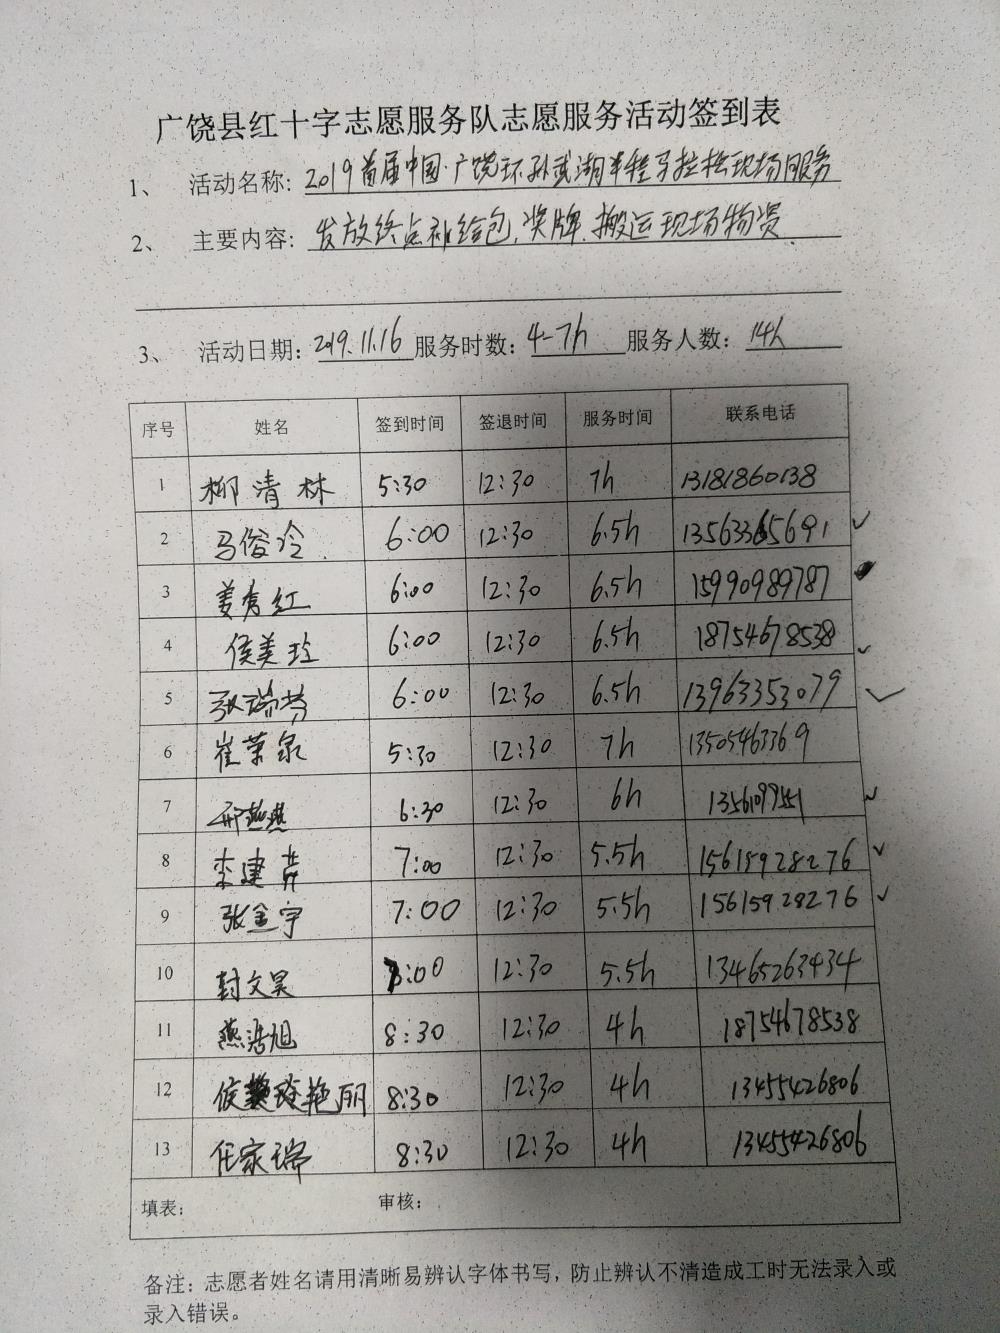 广饶县红十字志愿服务队志愿服务活动签到表
1、 活动名称: 2019首届中国·广饶环孙武湖半程马拉松现场服务
2、 主要内容: 发放终点补给包、奖牌、搬运现场物资
3、 活动日期: 2019.11.16 服务时数: 4-7h 服务人数: 14h
序号 姓名 签到时间 签退时间 服务时间 联系电话
1 柳清林 5:30 12:30 7h 13181860138
2 马俊玲 6:00 12:30 6.5h 13563365691
3 姜秀红 6:00 12:30 6.5h 15990989787
4 侯美玲 6:00 12:30 6.5h 18754678538
5 张瑞芳 6:00 12:30 6.5h 13963353079
6 崔荣泉 5:30 12:30 7h 13505463369
7 邢燕燕 6:30 12:30 6h
8 李建芳 7:00 12:30 5.5h 15615928276
9 张金宇 7:00 12:30 5.5h 15615928276
10 封文昊 7:00 12:30 5.5h 13465263434
11 燕浩旭 8:30 12:30 4h 18754678538
12 侯艳丽 8:30 12:30 4h 13455426806
13 任家瑞 8:30 12:30 4h 13455426806
填表: 审核:
备注: 志愿者姓名请用清晰易辨认字体书写，防止辨认不清造成工时无法录入或
录入错误。